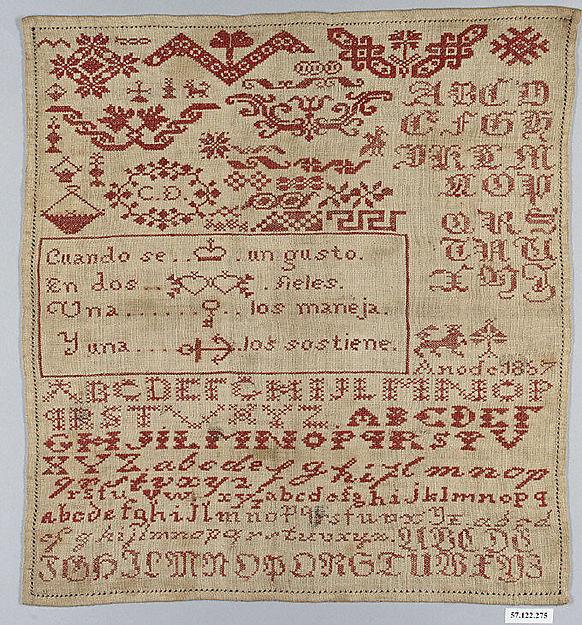 A B C D
E F G H
I J K L M
N O P
Q R S
T U V
X Y Z
C. D.
Cuando se . . un gusto.
En dos . . fieles.
Una . . . . . . . los maneja.
Y una . . . . . los sostiene.
Ano de 1867
A B C D E F G H I J L M N O P
Q R S T V X Y Z . A B C D E F
G H J I L M N O P Q R S T V
X Y Z a b c d e f g h i j l m n o p
q r s t u v x y z
r s t u v w x y z a b c d e f g h i j k l m n o p q
a b c d e f g h i j l m n o p q r s t u v x y z a b c d
e f g h i j l m n o p q r s t u v x y z A B C D E
F G H I L M N O P Q R S T U V X Y Z
57.122.275